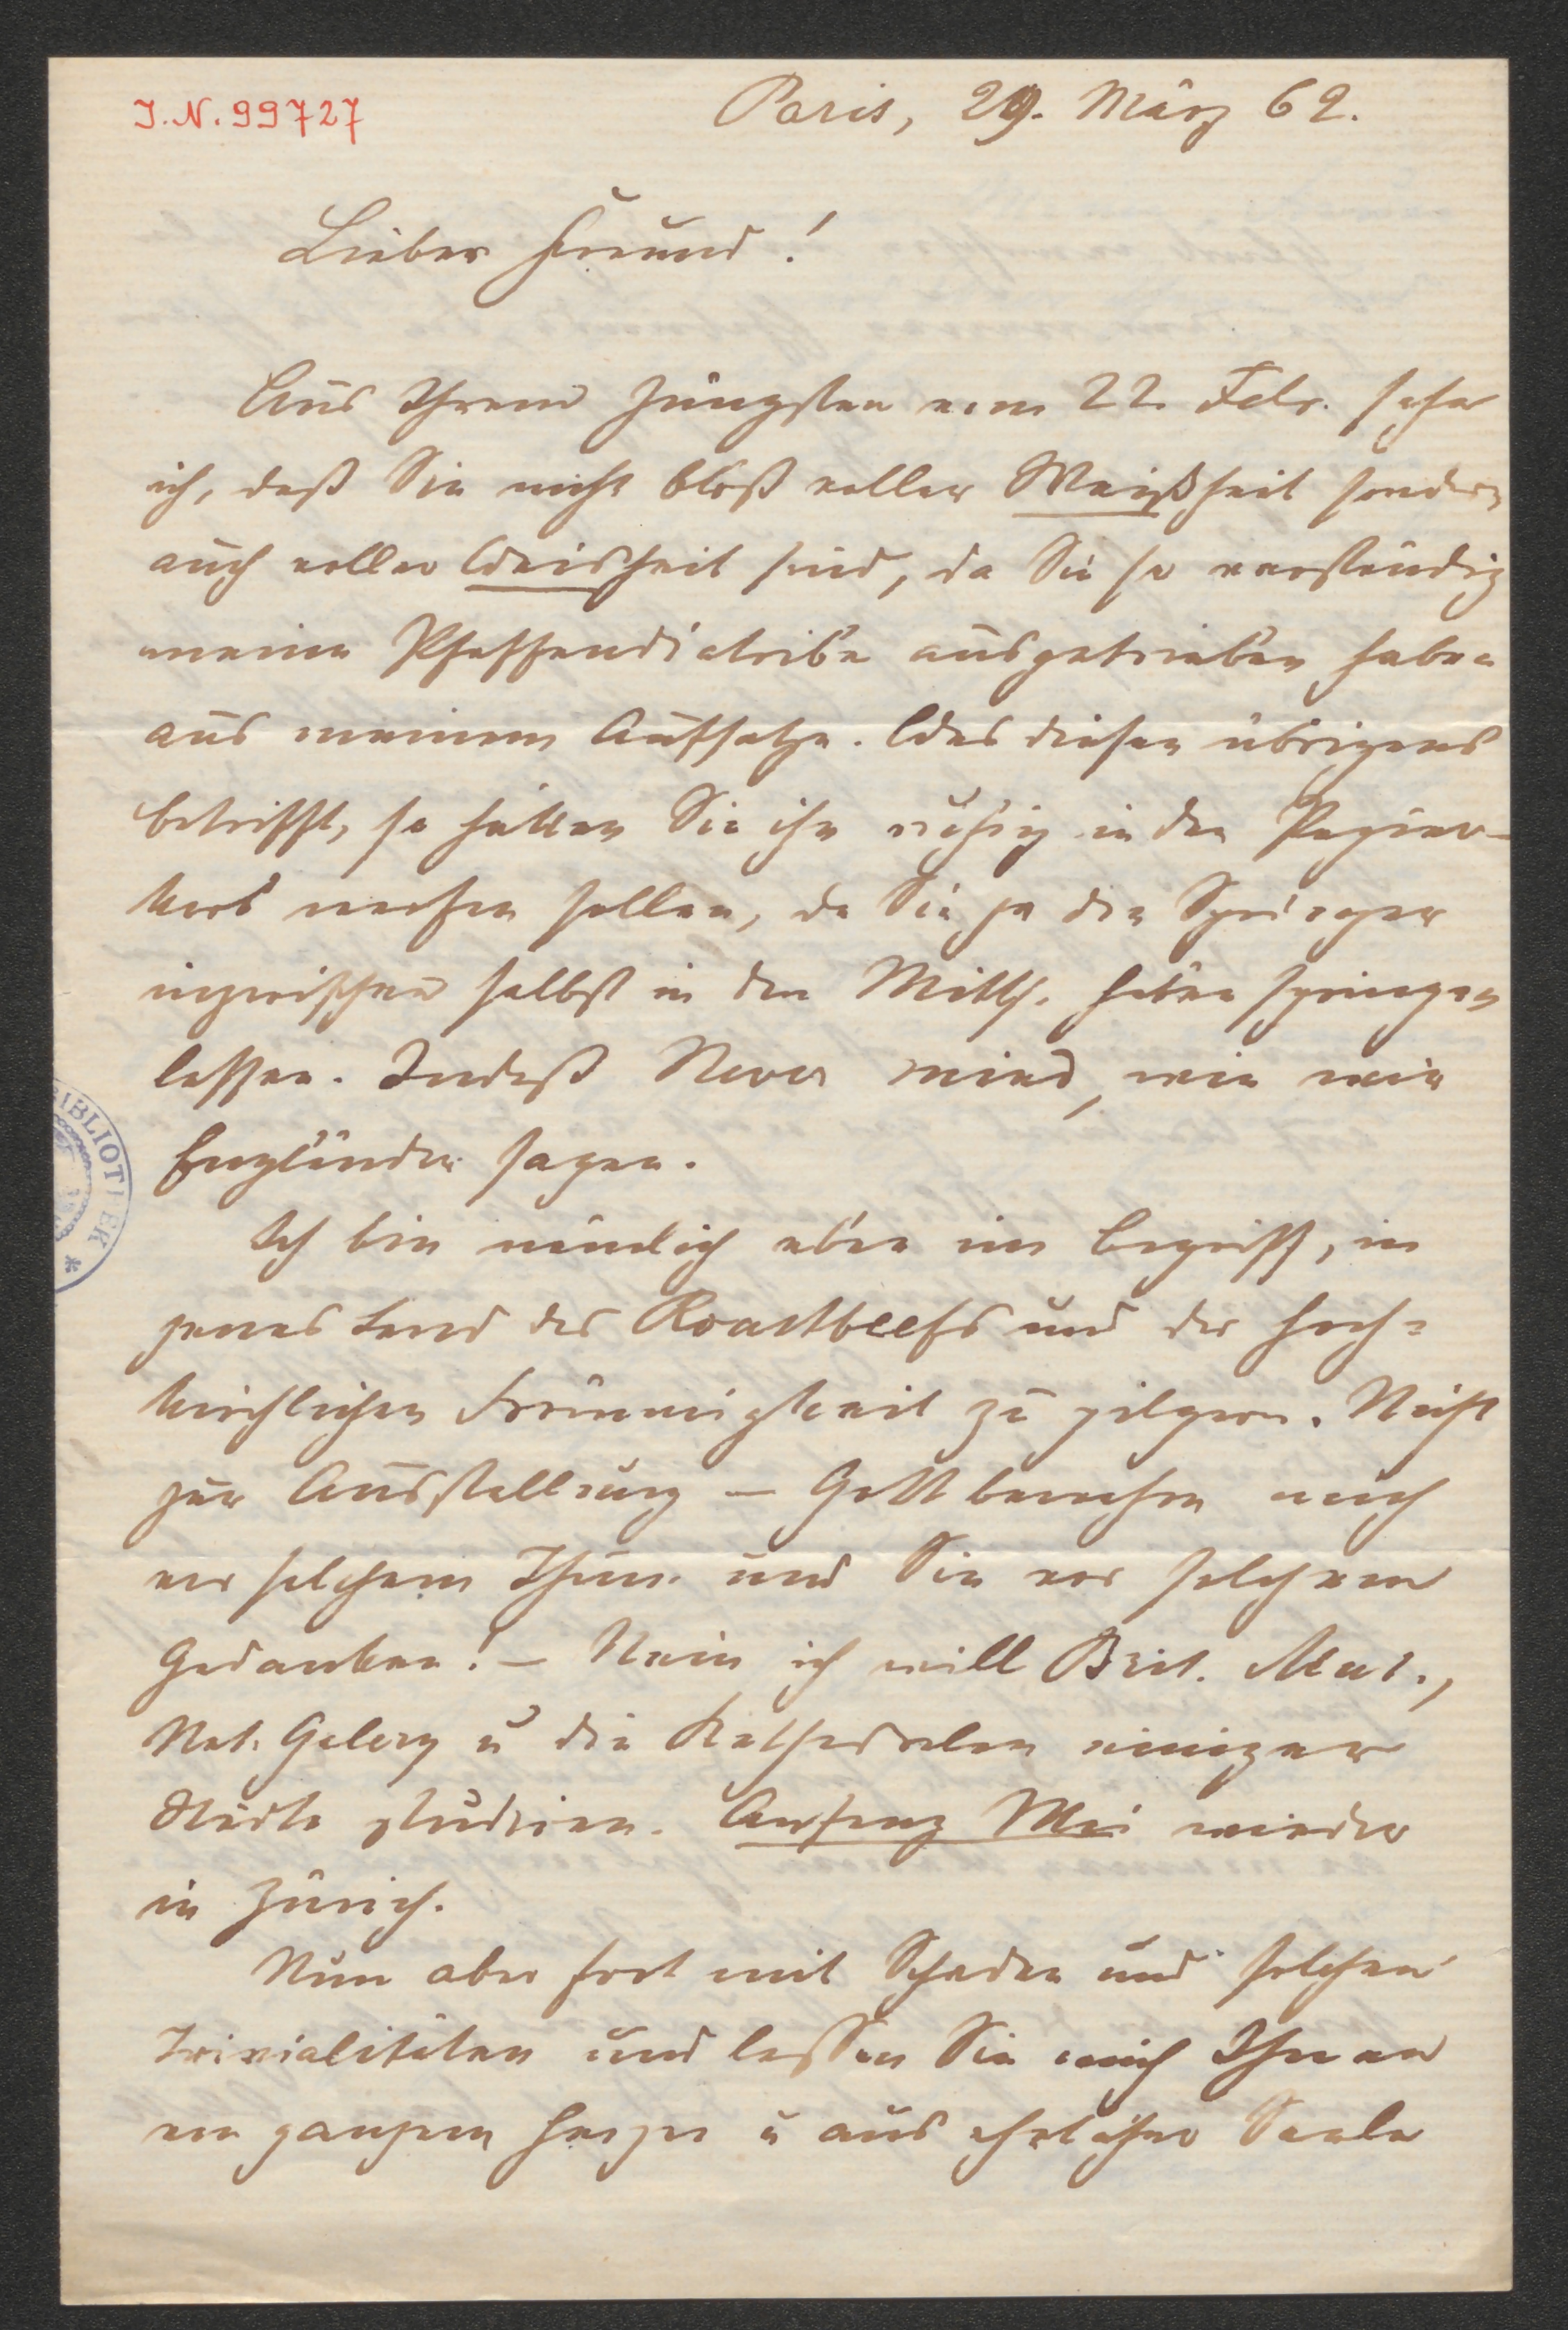 J.N. 99727
Paris, 29. März 62.
Lieber Freund!
Aus Ihrem Jüngsten vom 22. Febr. sehe
ich, daß Sie nicht bloß voller Weißheit sondern
auch voller Weisheit sind, da Sie so verständig
meine Pfaffendiatribe ausgetrieben haben
aus meinem Aufsatze. Was diesen übrigens
betrifft, so hätten Sie ihn ruhig in den Papier-
korb werfen sollen, da Sie ja den Springer
inzwischen selbst in den Mitth. haben springen
lassen. Indeß Never mind, wie wir
Engländer sagen.
Ich bin nämlich eben im Begriff, in
jenes Land des Roastbeefs und der hoch=
kirchlichen Frömmigkeit zu pilgern. Nicht
zur Ausstellung – Gott bewahre mich
vor solchem Thun und Sie vor solchem
Gedanken! – Nein ich will Brit. Mus.,
Nat. Galery u die Kathedralen einiger
Städte studiren. Anfang Mai wieder
in Zürich.
Nun aber fort mit Schaden und solchen
Trivialitäten und lassen Sie mich Ihnen
von ganzem Herzen u aus ehrlicher Seele
BIBLIOTHEK